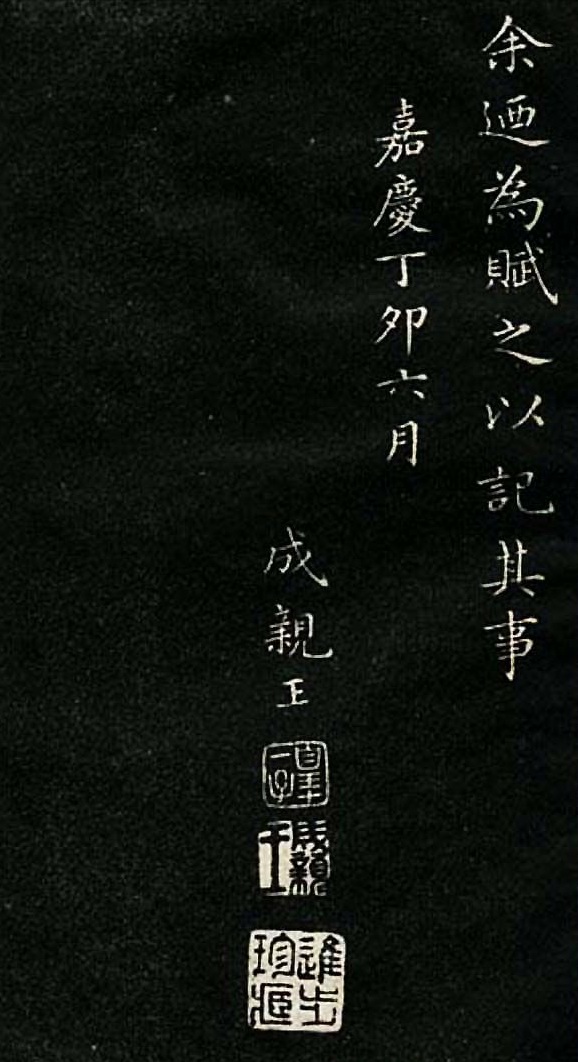 余迺為賦之以記其事
嘉慶丁卯六月
成親王
成親王